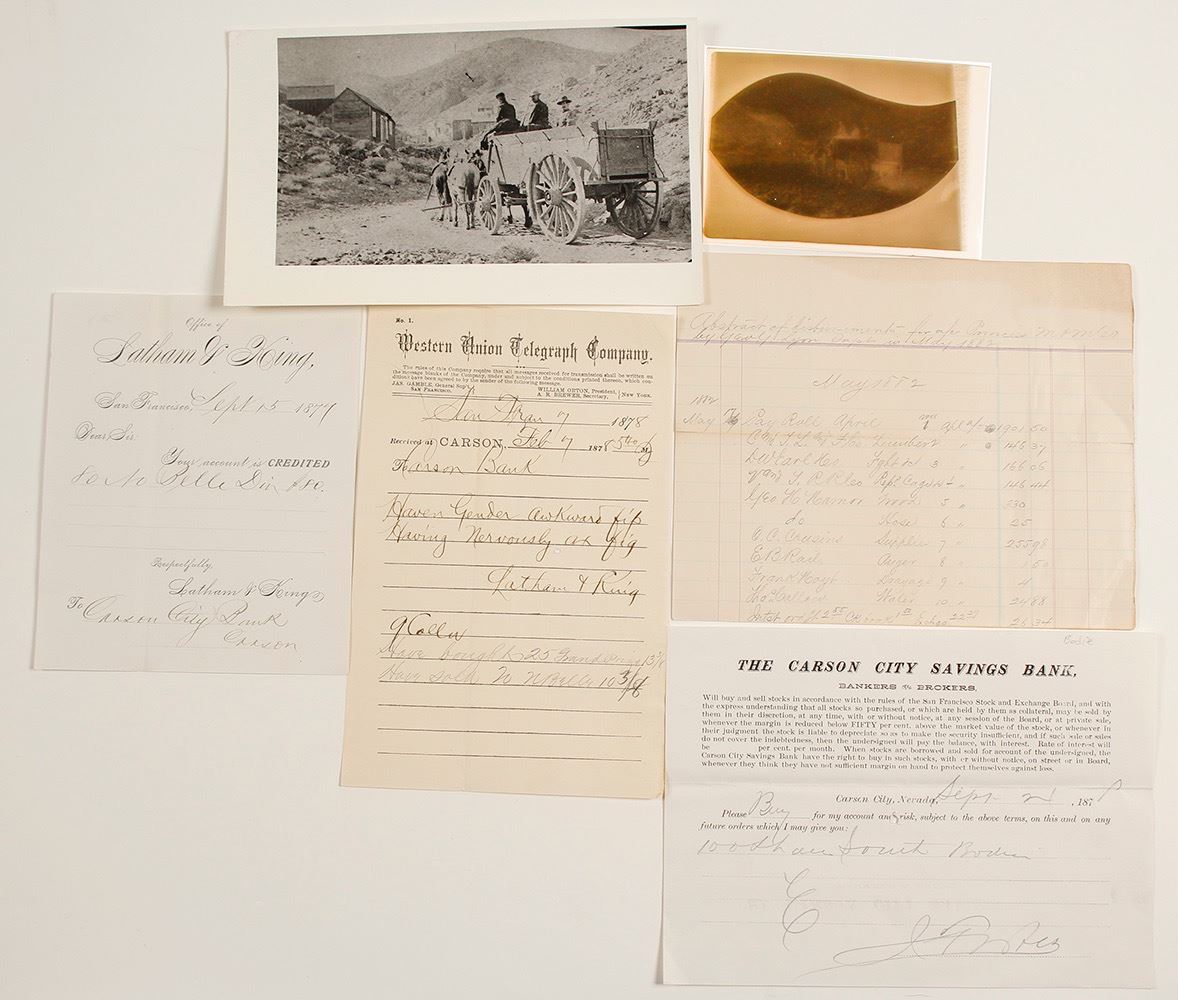 Office of
Latham & King,
San Francisco, Sept 15 1877
Dear Sir:
Your account is CREDITED
80 No Belle Div
Respectfully,
Latham & King
To Carson City Bank
Carson
No. 1.
Western Union Telegraph Company.
The rules of this Company require that all messages received for transmission shall be written on
the message blanks of the Company, under and subject to the conditions printed thereon, which con-
ditions have been agreed to by the sender of the following message.
JAS. GAMBLE, General Sup't,
SAN FRANCISCO.
WILLIAM ORTON, President,
A. R. BREWER, Secretary,
NEW YORK.
San Fran 7 1878
Received at CARSON, Feb 7 1878
To Carson Bank
Haven Gender awkward fip
Having Nervously ax fig
Latham & King
9 Collu
Have bought 25 Grand 13
Have sold 20 N Belle 10 3/8
Abstract of disbursements for a/c M & M Co
by Supt in May 1882
May 1882
1882
May Pay Roll April 1901.50
146 37
3 " 166 06
146 44
Geo H Wood 5 " 330
do Hose 6 " 25
C. C. Supplies 7 " 255 98
E. B. Rail Auger 8 " 50
Frank Hoyt 9 " 4
Water 10 " 24 88
26 34
Bodie
THE CARSON CITY SAVINGS BANK,
BANKERS & BROKERS,
Will buy and sell stocks in accordance with the rules of the San Francisco Stock and Exchange Board, and with
the express understanding that all stocks so purchased, or which are held by them as collateral, may be sold by
them in their discretion, at any time, with or without notice, at any session of the Board, or at private sale,
whenever the margin is reduced below FIFTY per cent. above the market value of the stock, or whenever in
their judgment the stock is liable to depreciate so as to make the security insufficient, and if such sale or sales
do not cover the indebtedness, then the undersigned will pay the balance, with interest. Rate of interest will
be per cent. per month. When stocks are borrowed and sold for account of the undersigned, the
Carson City Savings Bank have the right to buy in such stocks, with or without notice, on street or in Board,
whenever they think they have not sufficient margin on hand to protect themselves against loss.
Carson City, Nevada, Sept 21, 1878
Please Buy for my account and risk, subject to the above terms, on this and on any
future orders which I may give you:
100 Shares South Bodie